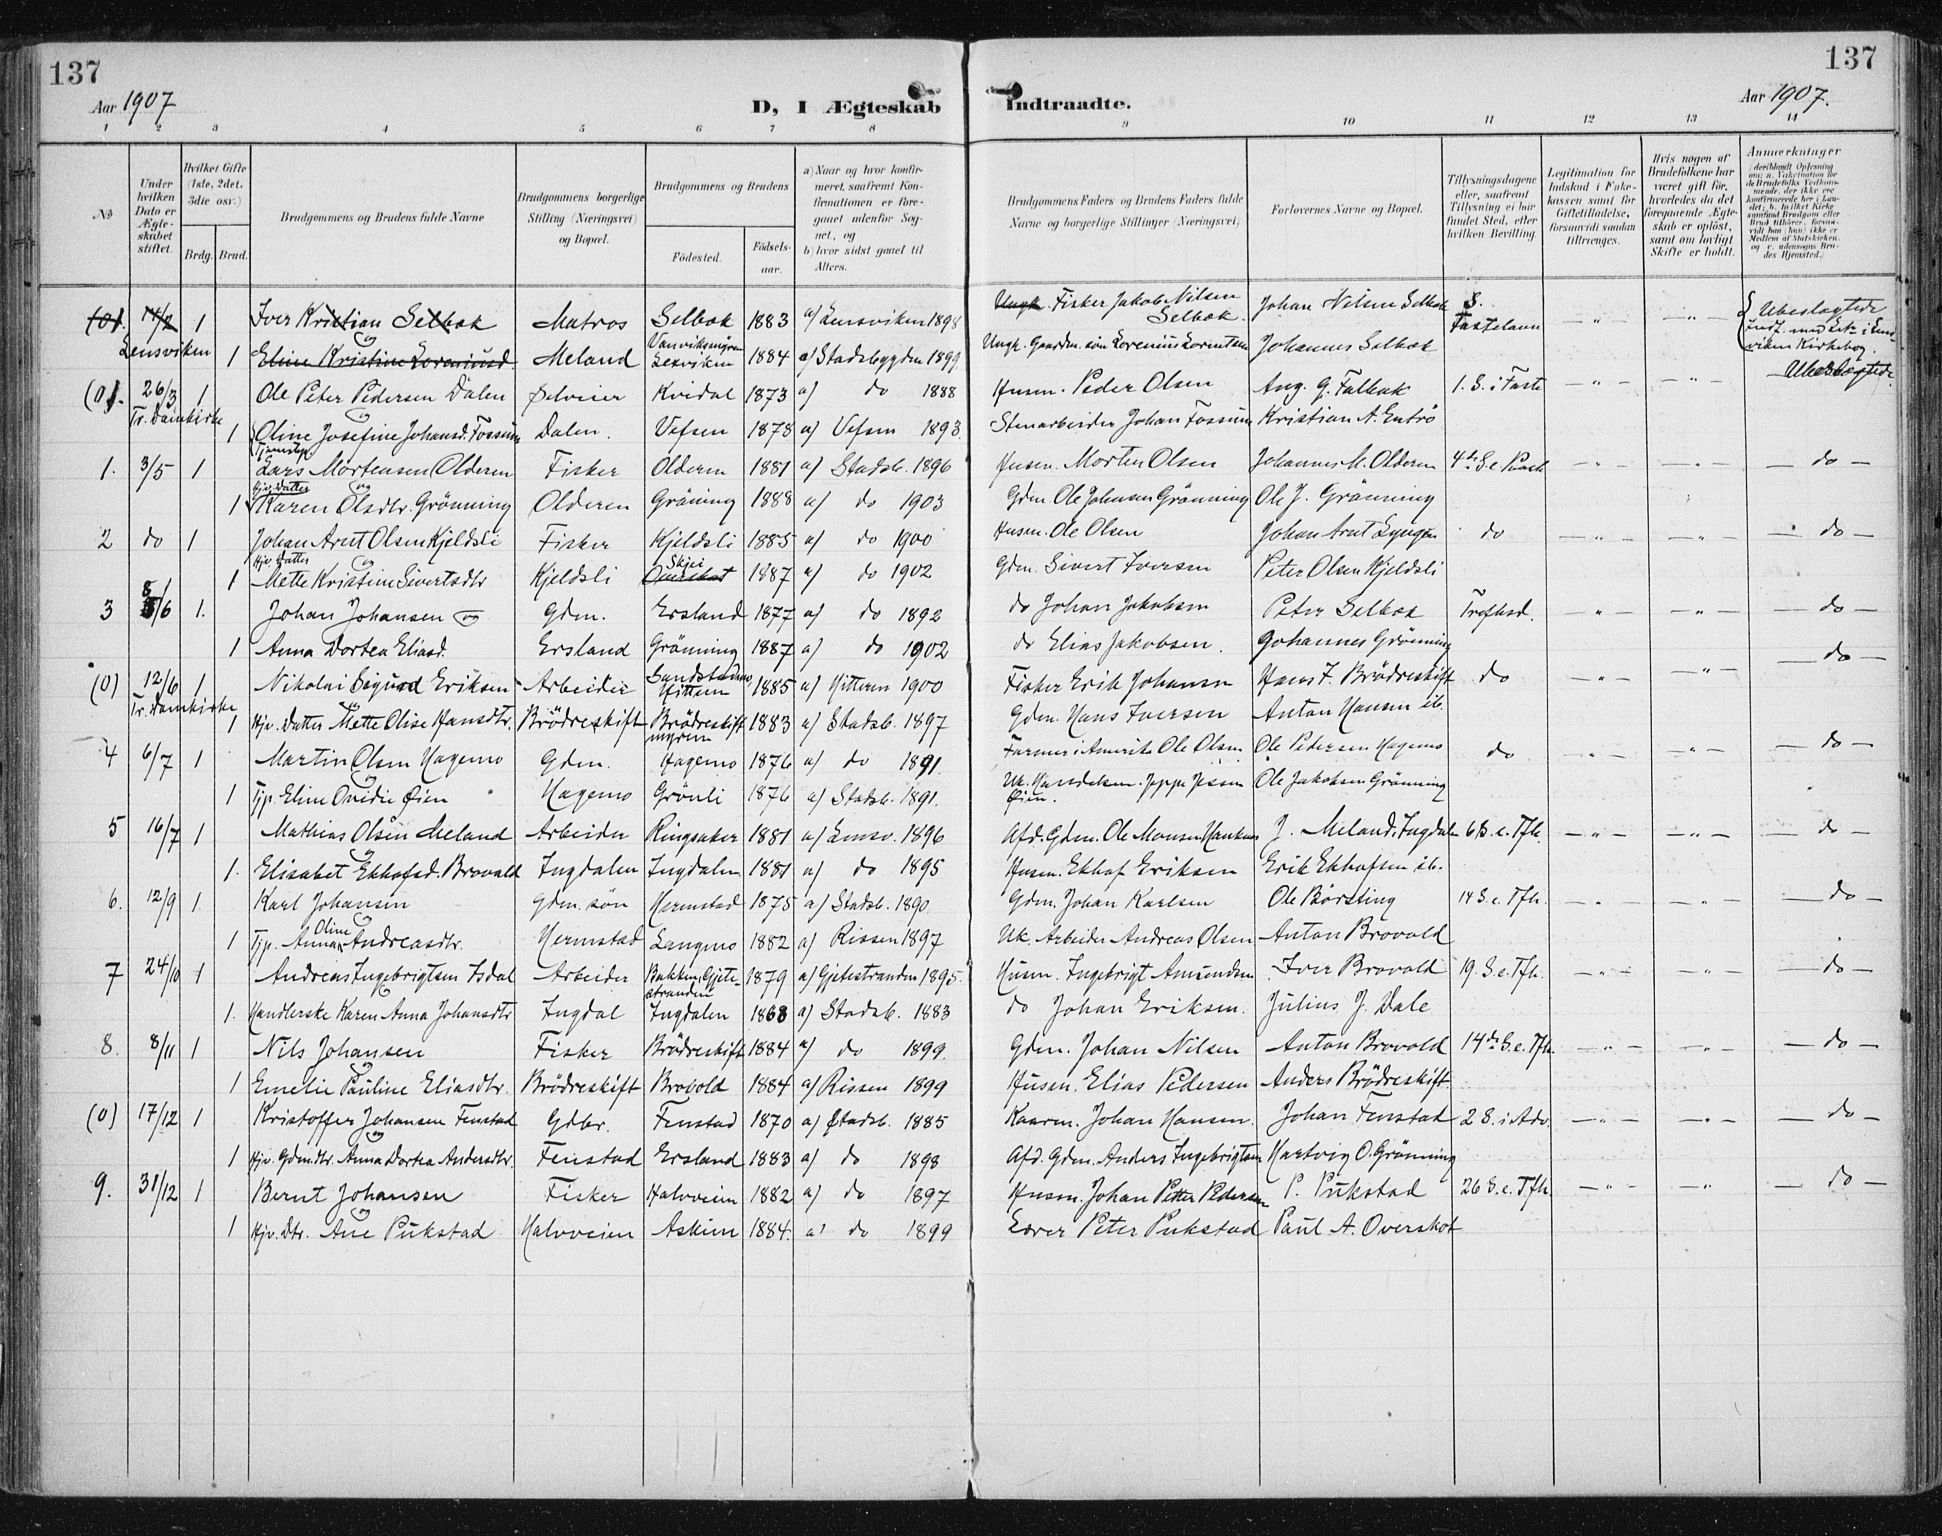 137
137
Aar 1907
D, I Ægteskab
Indtraadte.
Aar 1907.
1 2 3 4 5 6 7 8 9 10 11 12 13 14
No
Under hvilken Dato er Ægteskabet stiftet.
Hvilket Gifte (1ste, 2det, 3die osv.)
Brdg. Brud.
Brudgommens og Brudens fulde Navne
Brudgommens borgerlige Stilling (Næringsvei) og Bopæl.
Brudgommens og Brudens
Fødested.
Fødselsaar.
a) Naar og hvor konfirmeret, saafremt Konfirmationen er foregaaet udenfor Sognet, og
b) hvor sidst gaaet til Alters.
Brudgommens Faders og Brudens Faders fulde Navne og borgerlige Stillinger (Næringsvei)
Forlovernes Navne og Bopæl.
Tillysningsdagene eller, saafremt Tillysning ei har fundet Sted, efter hvilken Bevilling.
Legitimation for Indskud i Enkekassen samt for Giftetilladelse, forsaavidt saadan tiltrænges.
Hvis nogen af Brudefolkene har været gift før, hvorledes da det foregaaende Ægteskab er opløst, samt om lovligt Skifte er holdt.
Anmærkninger
(0). 1 Iver Kristian Selbak Matros Selbak 1883 a) Lensviken 1898 Fisker Jakob Nilsen Selbak. Johan Nilsen Selbak S. Fastelavn — " — — " — Ubeslægtede
Lensviken 1 Eline Kristine Lorentsd. Meland Vanviksmyren Lexviken 1884 a) Stadsbygden 1899 Johannes Selbak
(0). 26/3 1 Ole Peter Pedersen Dalen Selveier Kvidal 1873 a) do 1888 Husm. Peder Olsen Aug. G. Falbak 1. S. i Faste — " — — " — Ubeslægtede
Tr. Domkirke 1 Oline Josefine Johansd. Fossum Dalen. Vefsen 1878 a) Vefsen 1893. Stenarbeider Johan Fossum Kristian A. Entrö
1. 3/5 1 Lars Mortensen Olderen Fisker Olderen 1881 a) Stadsb. 1896 Husm. Morten Olsen Johannes M. Olderen 4de S. e. Paask — " — — " — — do —
1 Hjv. Datter Karen Olsdtr. Grönning Olderen Gröning 1888 a) do 1903 Gdm Ole Johnsen Grönning Ole J. Grönning
2 do 1 Johan Arnt Olsen Kjeldsli Fisker Kjeldsli 1885 a) do 1900 Husm. Ole Olsen Johan Arnt Lyngen do — " — — " — — do —
1 Hjv. Datter Mette Kristine Sivertsdtr Kjeldsli Skjei Overskot 1887 a) do 1902 Gdm. Sivert Iversen Peter Olsen Kjeldsli
3 8/6 1. Johan Johansen og Gdm. Ersland 1877 a) do 1892 do Johan Jakobsen Peter Selbak Trefhsd. — " — — " — — do —
1 Anna Dortea Eliasd. Ersland Grönning 1887 a) do 1902 do Elias Jakobsen. Johannes Grönning
(0) 12/6 1 Nikolai Sigurd Eriksen Arbeider Sandstadmo, Hitteren 1885 a) Hitteren 1900 Fisker Erik Johansen Hans I. Brödreskift do — " — — " — — do —
Tr. Domkirke 1 Hjv. Datter Mette Olise Hansdtr. Brödreskift Brödreskift myren 1883 a) Stadsb. 1897 Gdm. Hans Iversen Anton Hansen ib.
4 6/7 1 Martin Olsen Hagemo Gdm. Hagemo 1876 a) do 1891. Farmer i Amerika Ole Olsen Ole Pedersen Hagemo do — " — — " — — do —
1 Tjp. Eline Ovidie Øien Hagemo Grönli 1876 a) Stadsb. 1891. Øien. Ole Jakobsen Grönning
5 16/7 1 Mathias Olsen Meland Arbeider Ringsaker 1881 a) Lensv. 1896 Afd. Gdm. Ole Monsen J. Meland, Ingdalen 6 S. e. Tfh. — " — — " — — do —
1. Elisabet Ekhofsd. Brovald Ingdalen Ingdalen 1881 a) do 1895 Husm. Ekhof Eriksen Erik Ekhofsen ib.
6. 12/9 1 Karl Johansen Gdm. søn Hermstad 1875 a) Stadsb. 1890. Gdm. Johan Karlsen Ole Börsting 14 S. e. Tfh. — " — — " — — do —
1 Tjp. Anna Oline Andreasdtr. Hermstad Langmo 1882 a) Rissen 1897 Uk. Arbeider Andreas Olsen Anton Brovold
7 24/10 1 Andreas Ingebrigtsen Isdal Arbeider Bakken, Gjetestranden 1879 a) Gjetestranden 1895. Husm. Ingebrigt Amundsen Iver Brovold 19. S. e. Tfh. — " — — " — — do —
1. Handlerske Karen Anna Johansdtr Ingdal Ingdalen 1868 a) Stadsb. 1883 do Johan Eriksen. Julius J. Dale
8. 8/11 1 Nils Johansen Fisker Brödreskift 1884 a) do 1899. Gdm. Johan Nilsen Anton Brovold 14de S. e. Tfh. — " — — " — — do —
1 Emelie Pauline Eliasdtr. Brödreskift Brovold 1884 a) Rissen 1899 Husm. Elias Pedersen Anders Brödreskift
(0) 17/12 1 Kristoffer Johansen Fenstad Gdbr. Fenstad 1870 a) Stadsb. 1885 Kaarm. Johan Hansen. Johan Fenstad 2 S. i Adv. — " — — " — — do —
1 Hjv. Gdmdtr. Anna Dortea Andersdtr. Fenstad Ersland 1883 a) do 1898 Afd. Gdm. Anders Ingebrigtsen Hartvig O. Grönning
9. 31/12 1 Bernt Johansen Fisker Halvveien 1882 a) do 1897 Husm. Johan Petter Pedersen P. Pukstad 26 S. e. Tfh. — " — — " — — do —
1 Hjv. Dtr. Ane Pukstad Halvveien Askim 1884. a) do 1899 Lærer Peter Pukstad Paul A. Overskot